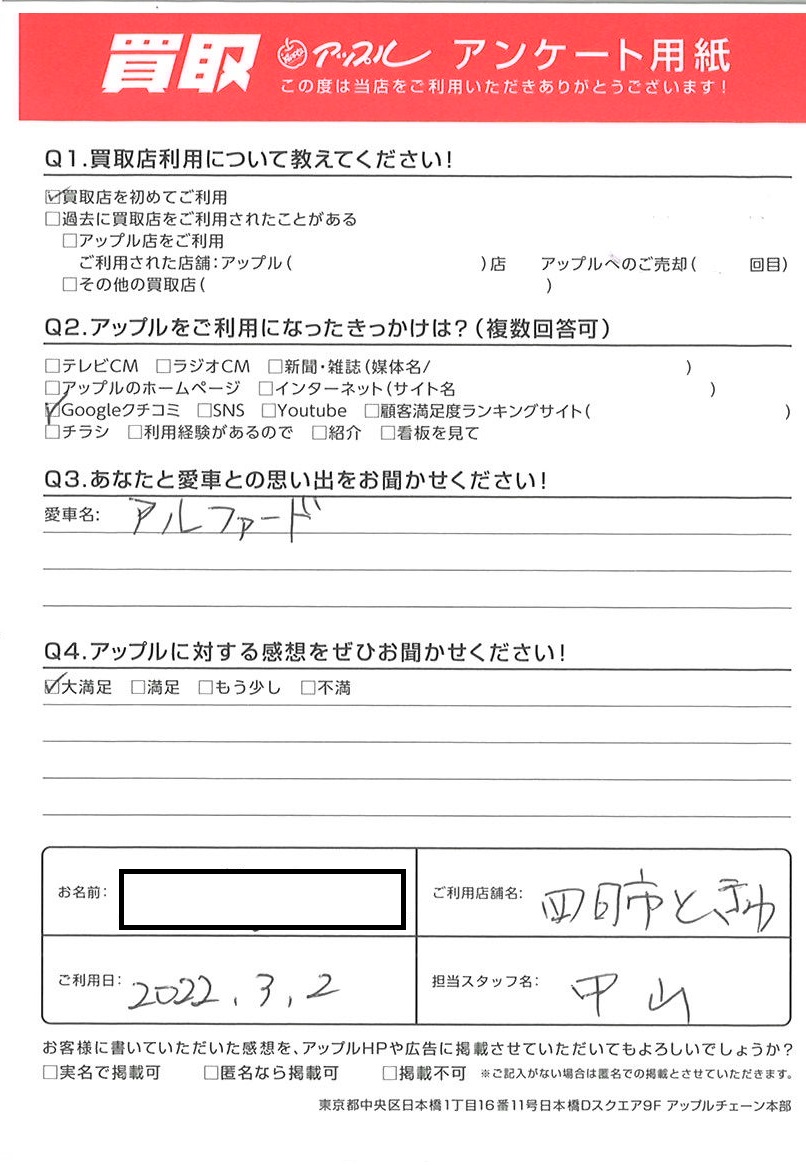 買取 アップル アンケート用紙
この度は当店をご利用いただきありがとうございます!
Q1.買取店利用について教えてください!
☑買取店を初めてご利用
□過去に買取店をご利用されたことがある
□アップル店をご利用
ご利用された店舗:アップル( )店 アップルへのご売却( 回目)
□その他の買取店( )
Q2.アップルをご利用になったきっかけは?(複数回答可)
□テレビCM □ラジオCM □新聞・雑誌(媒体名/ )
□アップルのホームページ □インターネット(サイト名 )
☑Googleクチコミ □SNS □Youtube □顧客満足度ランキングサイト( )
□チラシ □利用経験があるので □紹介 □看板を見て
Q3.あなたと愛車との思い出をお聞かせください!
愛車名: アルファード
Q4.アップルに対する感想をぜひお聞かせください!
☑大満足 □満足 □もう少し □不満
お名前:
ご利用店舗名: 四日市ときわ
ご利用日: 2022.3.2
担当スタッフ名: 中山
お客様に書いていただいた感想を、アップルHPや広告に掲載させていただいてもよろしいでしょうか?
□実名で掲載可 □匿名なら掲載可 □掲載不可 ※ご記入がない場合は匿名での掲載とさせていただきます。
東京都中央区日本橋1丁目16番11号日本橋Dスクエア9F アップルチェーン本部